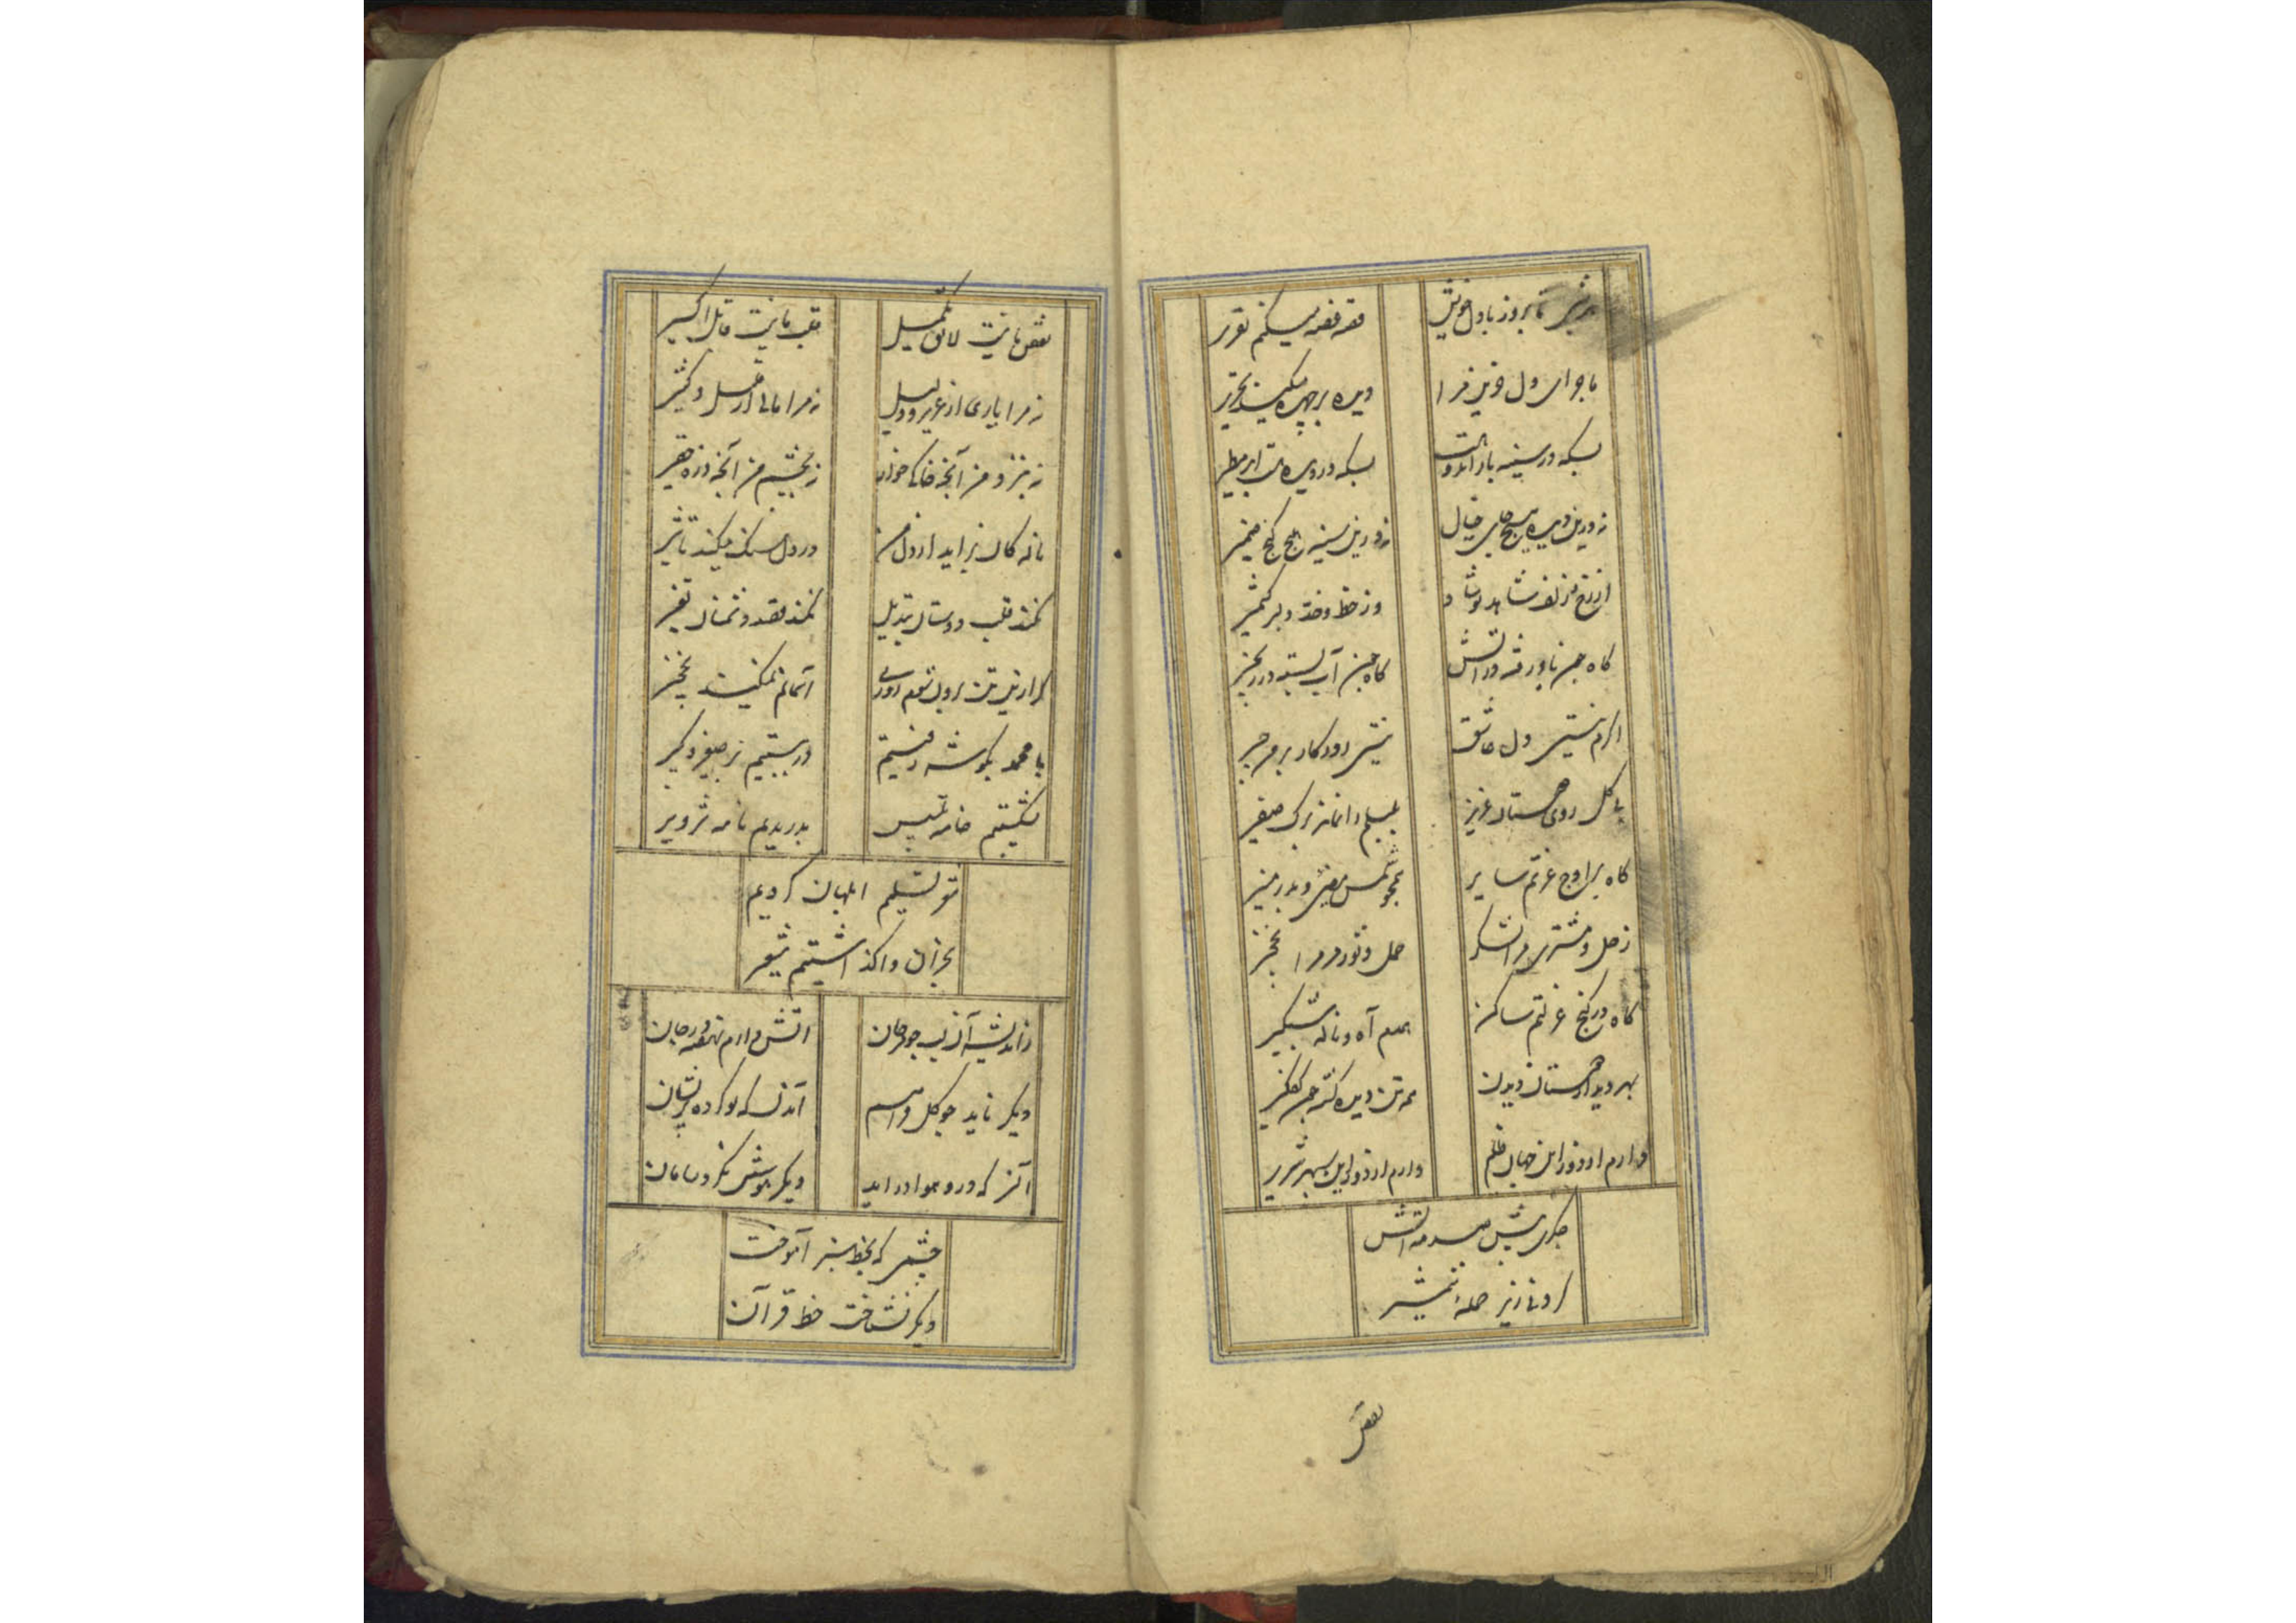 هر شب تا بروز با دل خویش
قصه قصه میکنم تقریر
ماجرای دل حزین مرا
دیده بر چهره میکند تحریر
بسکه در سینه بار اندوهست
بسکه در دیده هست ابر مطیر
نه درین دیده هیچ جای خیال
نه درین سینه هیچ کنج ضمیر
از رخ و زلف شاهد نوشاد
وز خط و خد دلبر کشمیر
گاه چون باد رفته در آتش
گاه چون آب بسته در زنجیر
دل عاشق
بی گل روی دوستان عزیز
بلبلم داند از صفیر
گاه بر اوج عزتم سایر
همچو شمس مضیء و بدر منیر
زحل و مشتری مرا لشکر
حمل و ثور مر مرا نخجیر
گاه در کنج عزلتم ساکن
همدم آه و ناله شبگیر
بهر دیدار دوستان دیدن
همه تن دیده گشته چون کفگیر
دارم از دور این جهان ظلم
دارم از دور این سپهر شریر
جگری پیش صدمه آتش
گردنی زیر حمله شمشیر
نقص
نقص ما نیست لایق تکمیل
قلب ما نیست قابل اکسیر
نه مرا یاری از عزیز و ذلیل
نه مرا مالی از قلیل و کثیر
نه بنزد من آنچه خاک خوار
نه بچشم من آنچه ذره حقیر
ناله کان برآید از دل من
در دل سنگ میکند تاثیر
نکند قلب دوستان تبدیل
نکند قصد دشمنان تغییر
گر ازین بیت برون شوم روزی
آسمانم نمیکند نخجیر
با محمد بگوشه رفتیم
در ببستیم بر صغیر و کبیر
بشکستیم خامه تلبیس
بدریدیم نامه تزویر
تو تسلیم ابلهان کردیم
بخران واگذاشتیم شعیر
ز اندیشه آن لب چو مرجان
آتش دارم نهفته در جان
دیگر ناید چو گل فراهم
آندل که تو کرده پریشان
آنسر که درو هوا درآید
دیگر بهوش نگرد سامان
چشمی که بخط سبز آموخت
دیگر نشناخت خط قرآن